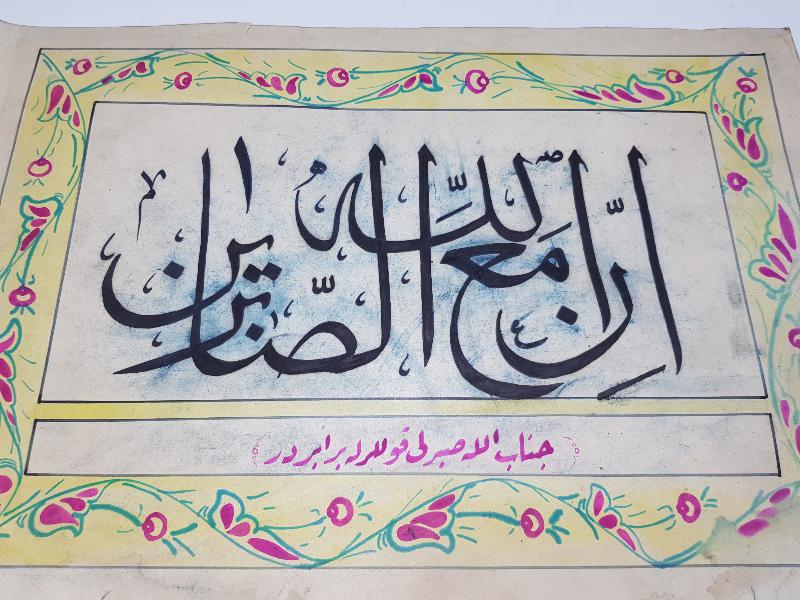 إن الله مع الصابرين
جناب الله صبرلی قوللرله برابردر